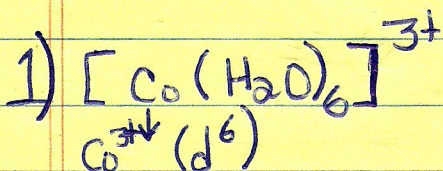 1) [Co(H₂O)₆]³⁺
Co³⁺ ↓ (d⁶)